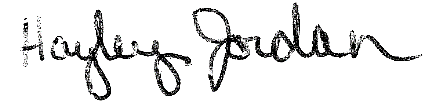 Hayley Jordan